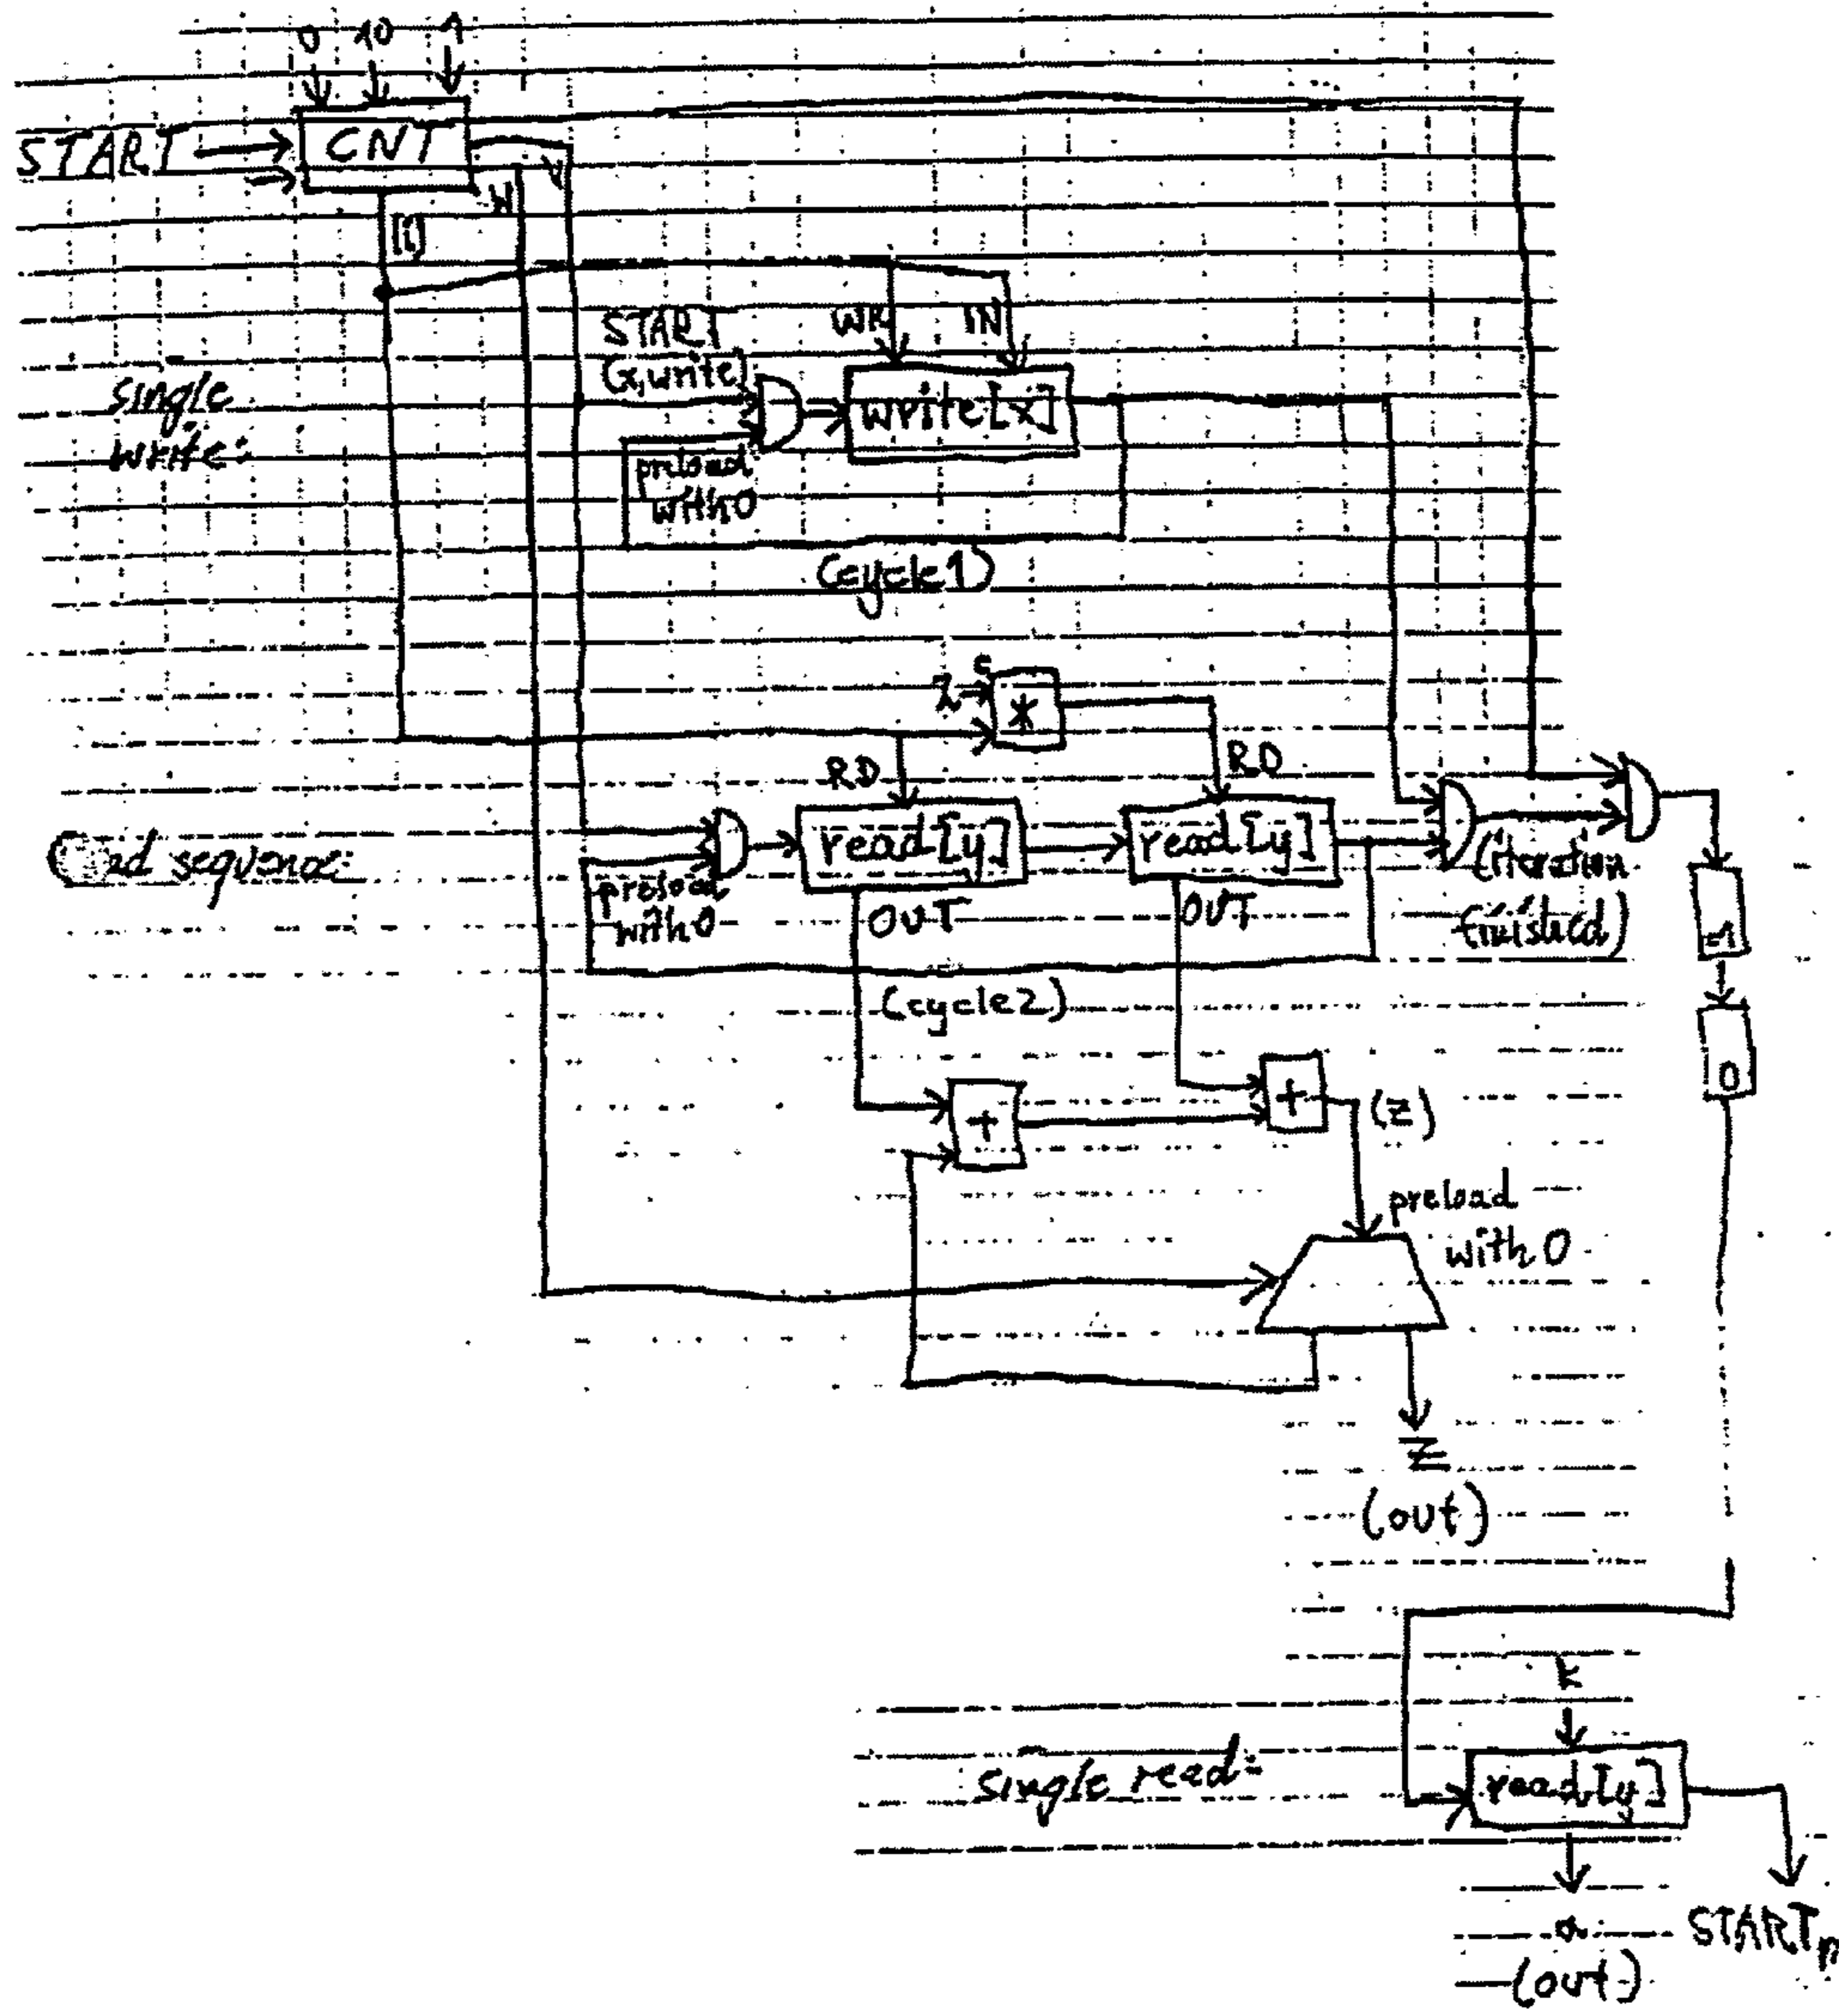 0 10 1
START CNT
V
W
[i]
START
(x,write)
WR IN
write[x]
single
write:
preload
with 0
(cycle1)
2 *
RD RD
read[y] read[y]
preload
with 0
OUT OUT
(iteration
finished)
(cycle2)
0
+ + (z)
preload
with 0
z
(out)
k
single read:
read[y]
a
(out)
STARTn